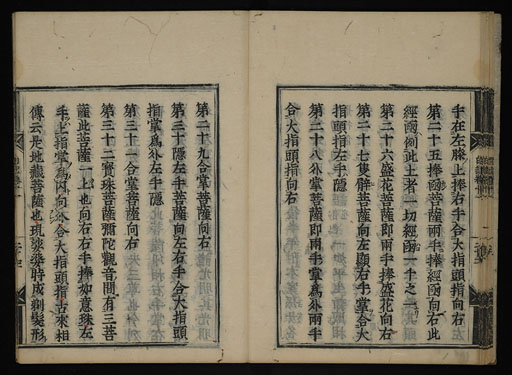 手在左膝上捧右手合大指頭指向左
第二十五捧函菩薩兩手捧經函向右此
經函倒此土者一切經函一千之二
第二十六盛花菩薩即兩手捧盛花向右
第二十七隻臂菩薩向左顯右手掌合大
指頭指左手隱
第二十八外掌菩薩即兩手掌爲外兩手
合大指頭指向右
第二十九合掌菩薩向右
第三十隱左手菩薩向左右手合大指頭
指掌爲外左手隱
第三十一合掌菩薩向右
第三十二寶珠菩薩彌陀觀音間有三菩
薩此菩薩一上也向右右手捧如意珠左
手上指掌爲内向外合大指頭指古來相
傳云是地藏菩薩也現染時成剃髮形